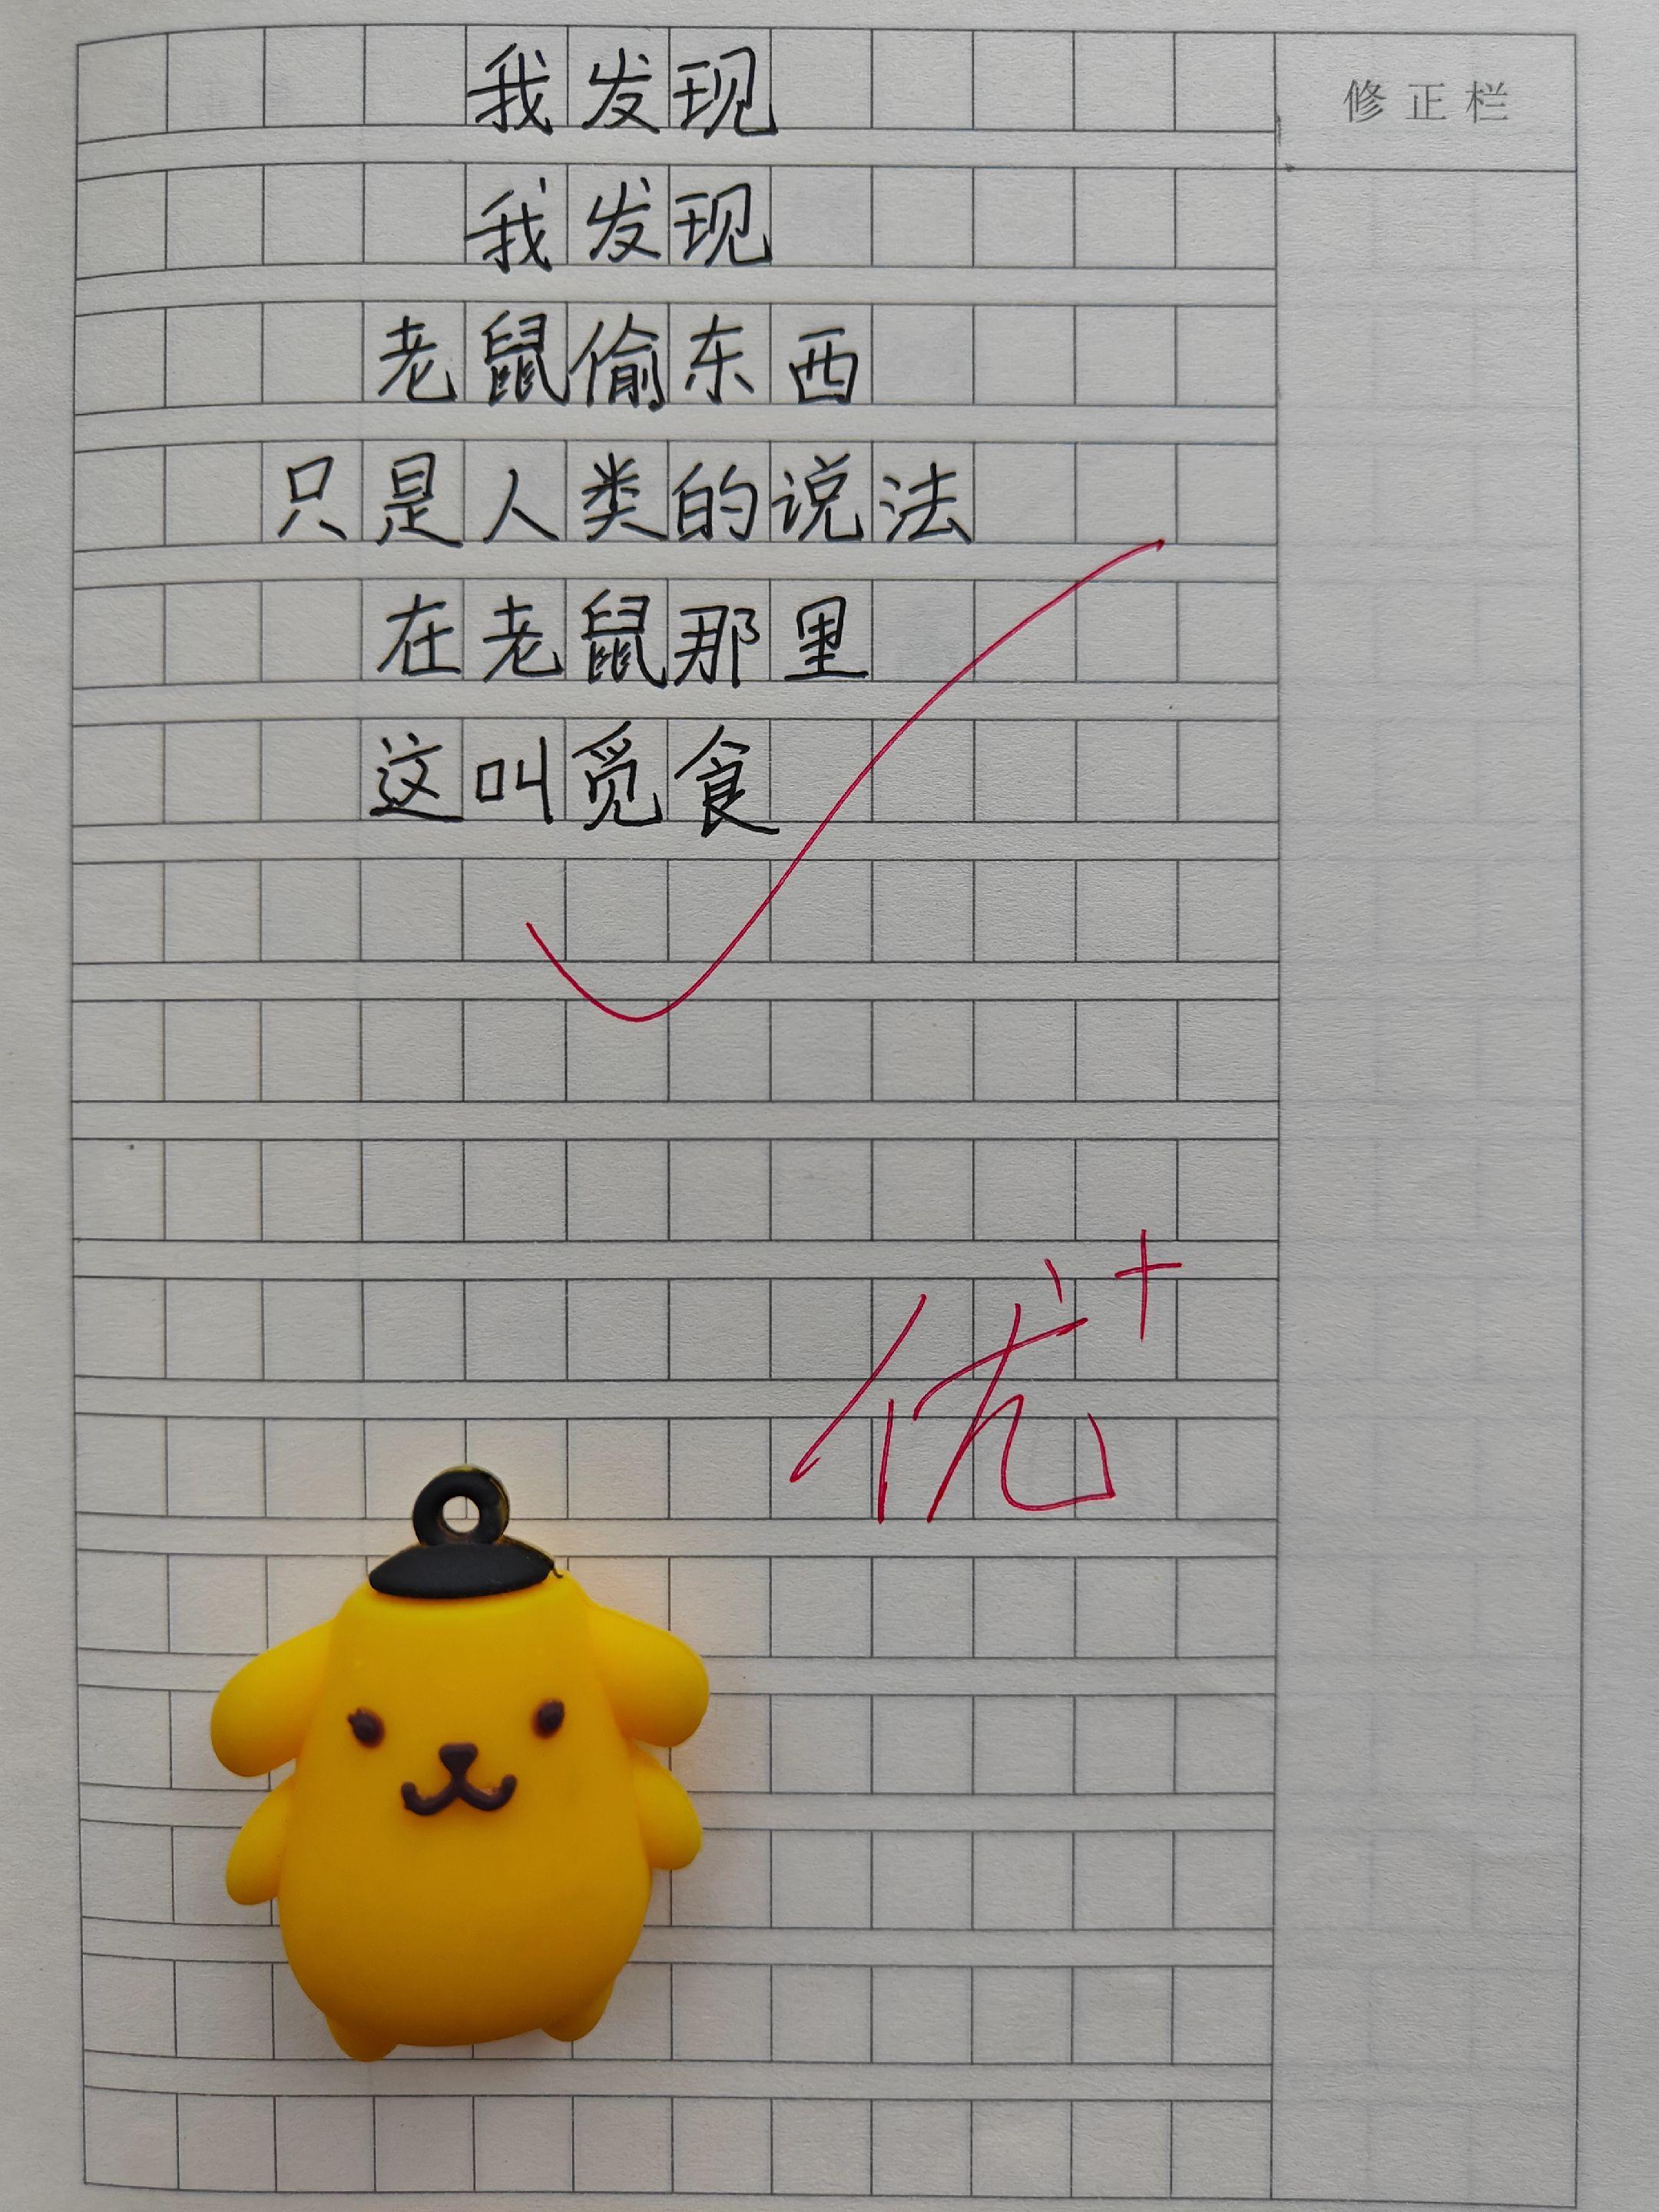 我发现
修正栏
我发现
老鼠偷东西
只是人类的说法
在老鼠那里
这叫觅食
优+